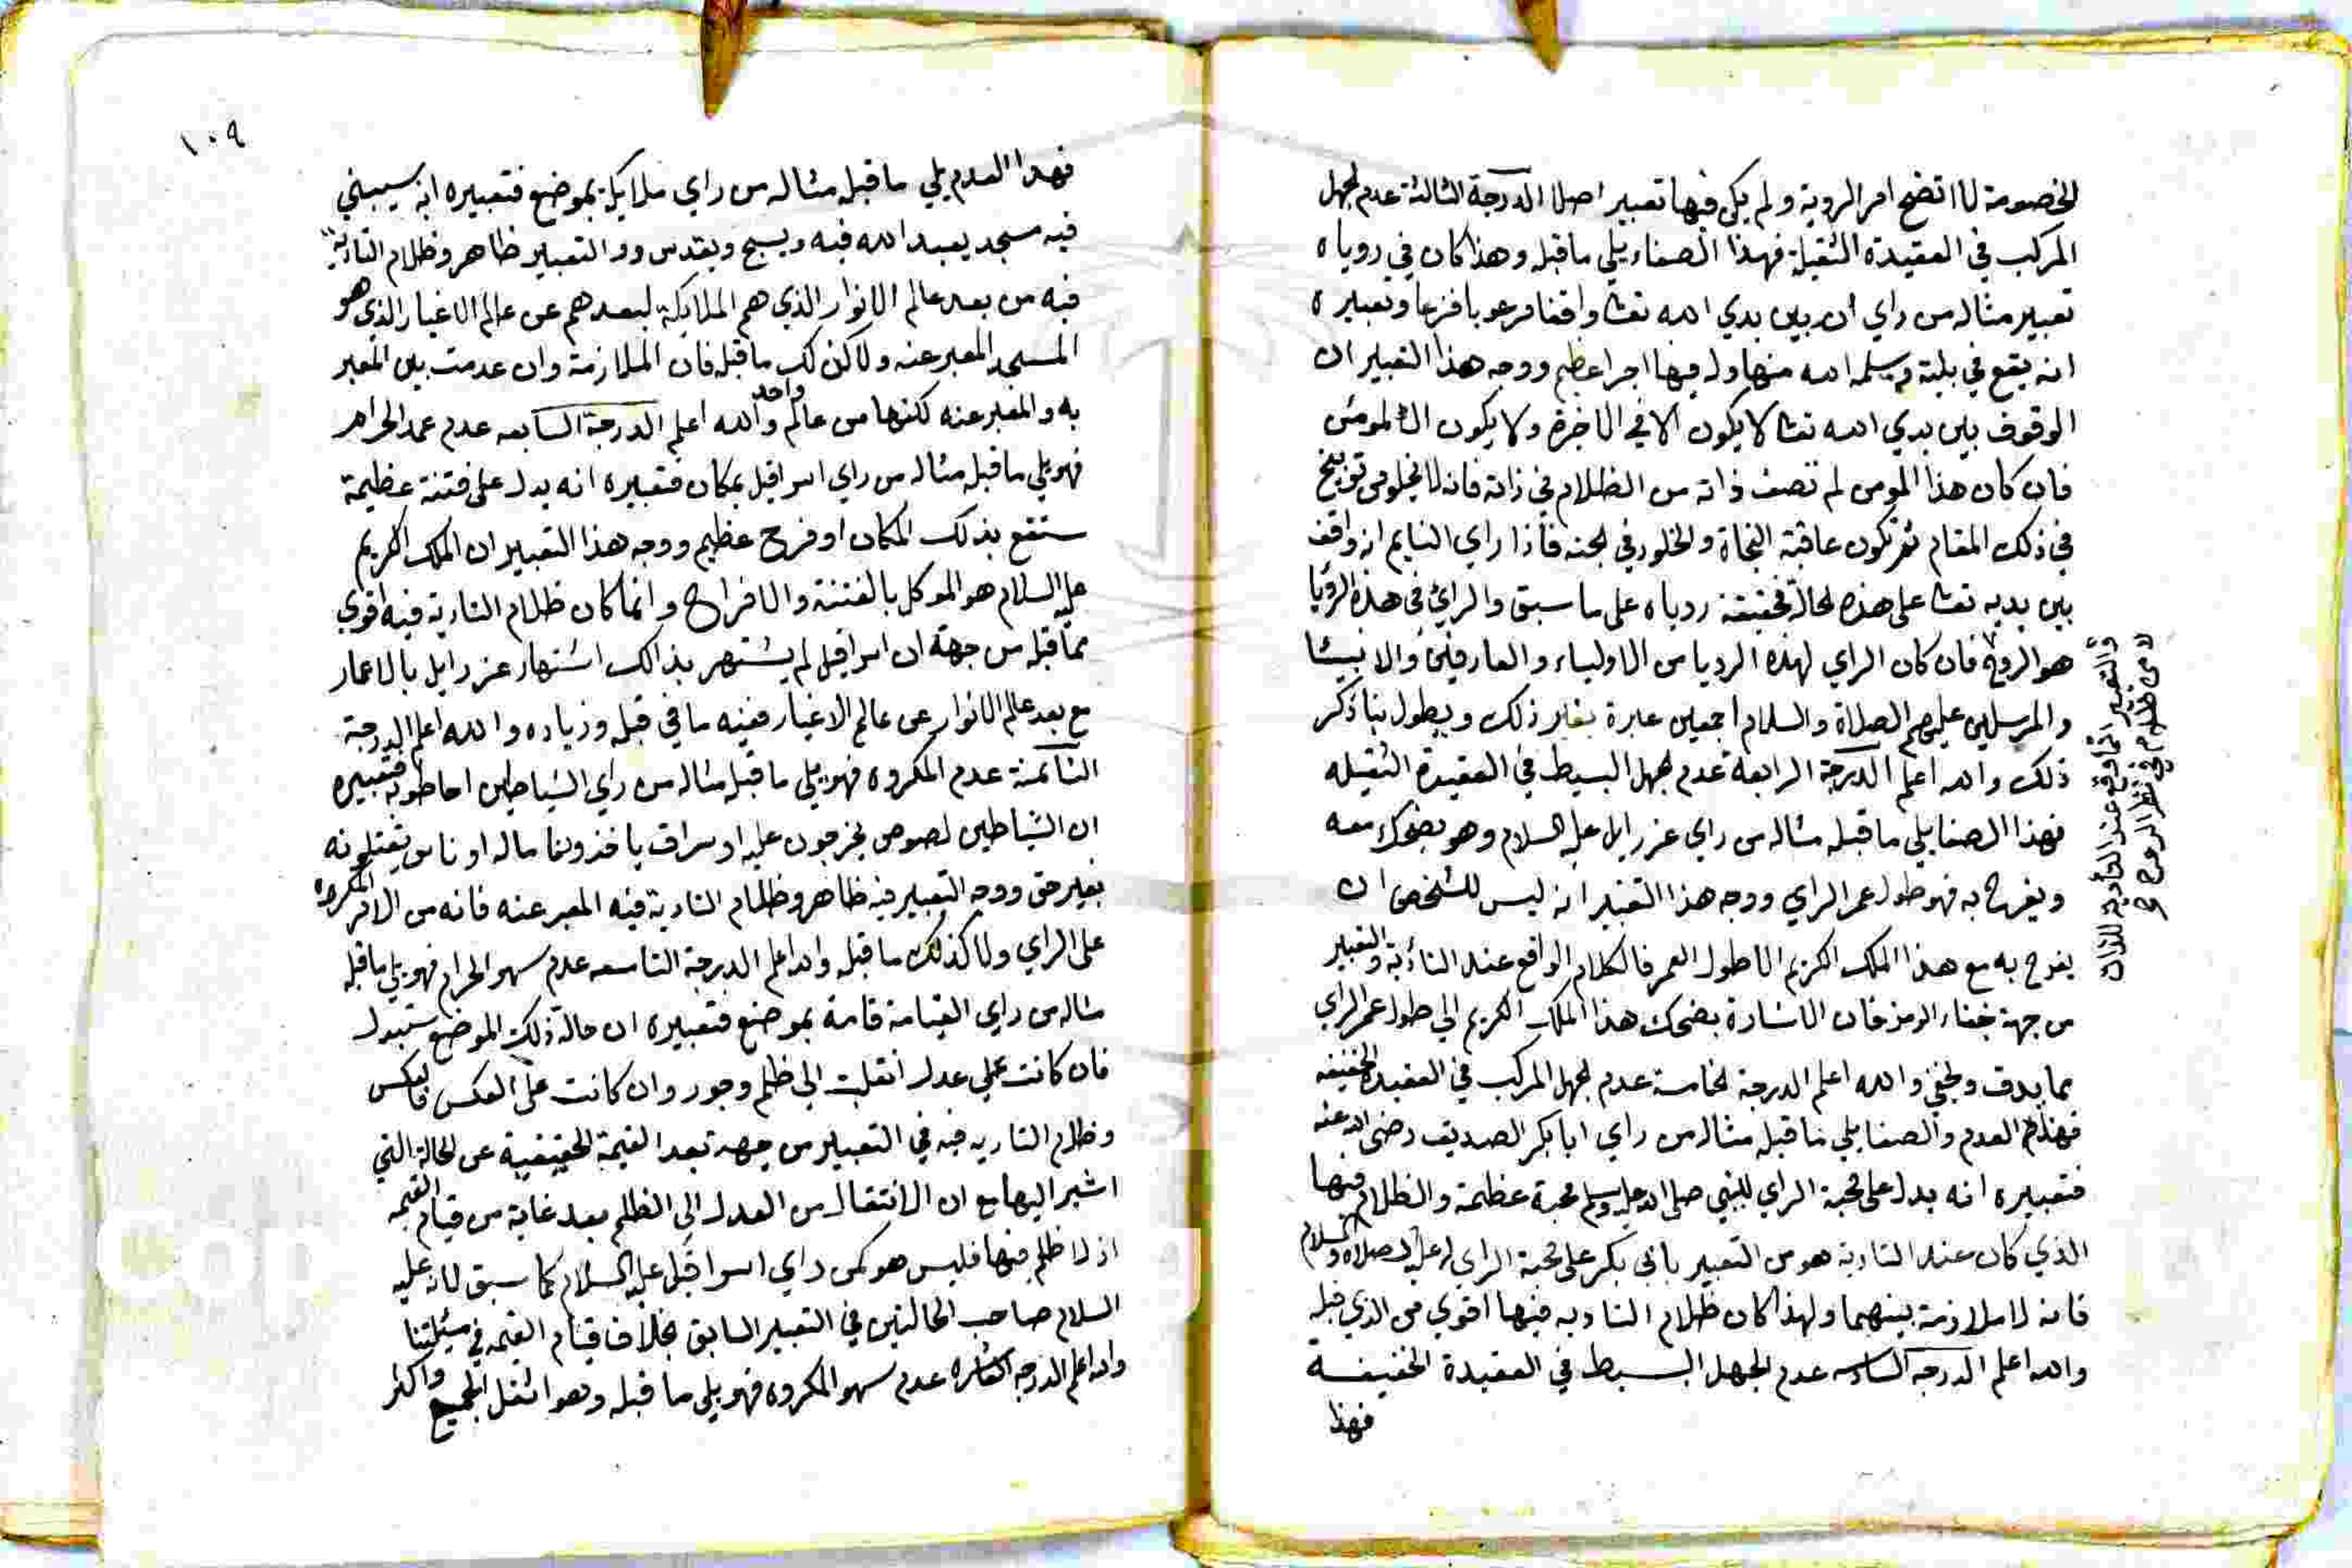 الخصومة لما اتضح امر الروية ولم يكن فيها تعبير اصلا الدرجة الثالثة عدم الجهل
المركب في العقيدة الثقيلة فهذا الصفاء يلي ما قبله وهذا كان في روياه
تعبير مثاله من راي انه بين يدي الله تعالى واقفا مرعوبا فزعا وتعبيره
انه يقع في بلية ويسلمه الله منها وله فيها اجر اعظيم ووجه هذا التعبير ان
الوقوف بين يدي الله تعالى لا يكون الا في الاخرة ولا يكون الا لمومن
فان كان هذا المومن لم تصف ذاته من الظلام في ذاته فانه لا يخلو من توبيخ
في ذلك المقام ثم تكون عاقبة النجاة والخلود في الجنه فاذا راي النايم انه واقف
بين يديه تعالى على هذه الحالة فحقيقة روياه على ما سبق والراي في هذه الرؤيا
هو الروح فان كان الراي لهذه الرويا من الاولياء والعارفين والانبيا
والمرسلين عليهم الصلاة والسلام اجمعين عبرة بغير ذلك ويطول بنا ذكر
ذلك والله اعلم الدرجة الرابعة عدم الجهل البسيط في العقيدة الثقيله
فهذا الصفا يلي ما قبله مثاله من راي عزرايل عليه السلام وهو يضحك معه
ويفرح به فهو طول عمر الراي ووجه هذا التعبير انه ليس للشخص ان
يفرح به مع هذا الملك الكريم الا طول العمر فالكلام الواقع عند التأدية والتعبير
من جهة خفاء الرمز فان الاشارة بضحك هذا الملك الكريم الي طول عمر الراي
مما يدق ويخفي والله اعلم الدرجة الخامسة عدم الجهل المركب في العقيدة الخفيفه
فهذا العدم والصفا يلي ما قبله مثاله من راي ابا بكر الصديق رضى الله عنه
فتعبيره انه يدل على محبة الراي للنبي صلى الله عليه وسلم محبة عظيمة والظلام فيها
الذي كان عند التادية هو من التعبير بابي بكر على محبة الراي له عليه الصلاه والسلام
فانه لا ملازمة بينهما ولهذا كان ظلام التاديه فيها اقوي من الذي قبله
والله اعلم الدرجه السادسه عدم الجهل البسيط في العقيدة الخفيفة
فهذا
والتعبير انما وقع عند التادية للذات
لا من ظلام في نظر الروح
١٠٩
فهذا العدم يلي ما قبله مثاله من راي ملايكة بموضع فتعبيره انه سيبني
فيه مسجد يعبد الله فيه ويسبح ويقدس ووالتعبير ظاهر وظلام التادية
فيه من بعد عالم الانوار الذي هم الملايكة لبعدهم عن عالم الاغيار الذي هو
المسجد المعبر عنه ولا كذلك ما قبله فان الملازمة وان عدمت بين المعبر
به والمعبر عنه لكنها من عالم واحد والله اعلم الدرجة السابعه عدم عمد الحرام
فهو يلي ما قبله مثاله من راي اسرافيل بمكان فتعبيره انه يدل على فتنة عظيمة
ستقع بذلك المكان او فرح عظيم ووجه هذا التعبير ان الملك الكريم
عليه السلام هو الموكل بالفتنة والافراح وانما كان ظلام التادية فيه اقوي
مما قبله من جهة ان اسرافيل لم يشتهر بذالك اشتهار عزرايل بالاعمار
مع بعد عالم الانوار عن عالم الاغيار ففيه ما في قبله وزياده والله اعلم الدرجة
الثامنة عدم المكروه فهو يلي ما قبله مثاله من راي الشياطين احاطو به فتعبيره
ان الشياطين لصوص يخرجون عليه او سراق ياخذون ماله او ناس يقتلونه
بغير حق ووجه التعبير فيه ظاهر وظلام التادية فيه المعبر عنه فانه من الامر المكروه
على الراي ولا كذلك ما قبله والله اعلم الدرجة التاسعه عدم سهو الحرام فهو يلي ما قبله
مثاله من راي القيامة قامة بموضع فتعبيره ان حالة ذلك الموضع ستبدل
فان كانت على عدل انقلبت الى ظلم وجور وان كانت على العكس فالعكس
وظلام التاديه فيه في التعبير من جهة تبعد القيمة الحقيقية عن الحالة التي
اشير اليها مع ان الانتقال من العدل الى الظلم بعد غاية من قيام القيمه
اذ لا ظلم فيها فليس هو كمن راي اسرافيل عليه السلام كما سبق لانه عليه
السلام صاحب الحالتين في التعبير السابق بخلاف قيام القيمه في مسئلتنا
والله اعلم الدرجه العاشره عدم سهو المكروه فهو يلي ما قبله وهو اثقل الجميع واكثر